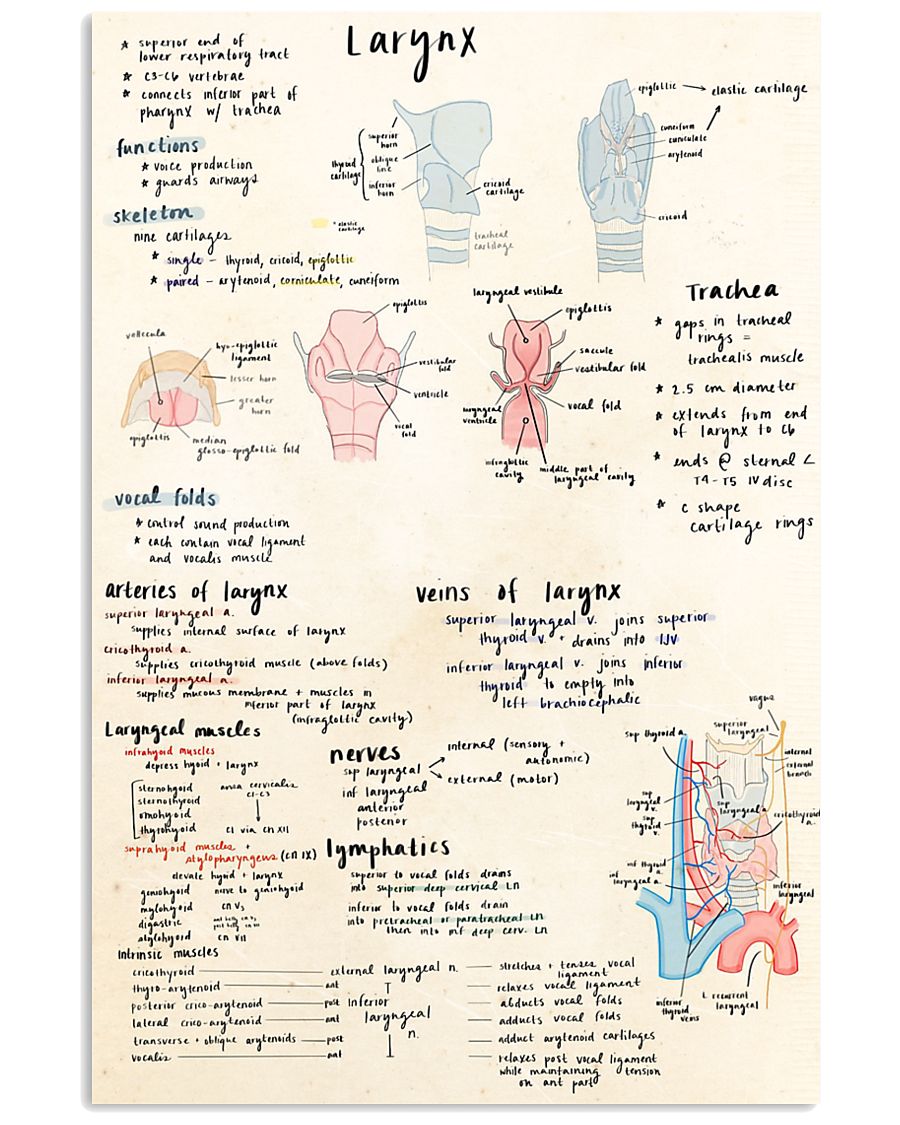 Larynx
* superior end of
lower respiratory tract
* C3-C6 vertebrae
* connects inferior part of
pharynx w/ trachea
functions
* voice production
* guards airways
skeleton
nine cartilages
* single - thyroid, cricoid, epiglottic
* paired - arytenoid, corniculate, cuneiform
* elastic
cartilage
thyroid
cartilage
superior
horn
oblique
line
inferior
horn
cricoid
cartilage
tracheal
cartilage
epiglottic
elastic cartilage
cuneiform
arytenoid
cricoid
vallecula
hyo-epiglottic
ligament
lesser horn
greater
horn
epiglottis
median
glosso-epiglottic fold
epiglottis
vestibular
fold
ventricle
vocal
fold
laryngeal vestibule
epiglottis
saccule
vestibular fold
laryngeal
ventricle
vocal fold
infraglottic
cavity
middle part of
laryngeal cavity
Trachea
* gaps in tracheal
rings =
trachealis muscle
* 2.5 cm diameter
* extends from end
of larynx to C6
* ends @ sternal ∠
T4-T5 IV disc
* c shape
cartilage rings
vocal folds
* control sound production
* each contain vocal ligament
and vocalis muscle
arteries of larynx
superior laryngeal a.
supplies internal surface of larynx
cricothyroid a.
supplies cricothyroid muscle (above folds)
inferior laryngeal a.
supplies mucous membrane + muscles in
inferior part of larynx
(infraglottic cavity)
veins of larynx
superior laryngeal v. joins superior
thyroid v. + drains into IJV
inferior laryngeal v. joins inferior
thyroid to empty into
left brachiocephalic
Laryngeal muscles
infrahyoid muscles
depress hyoid + larynx
sternohyoid
sternothyroid
omohyoid
thyrohyoid
ansa cervicalis
C1-C3
C1 via CN XII
suprahyoid muscles +
stylopharyngeus (CN IX)
elevate hyoid + larynx
geniohyoid nerve to geniohyoid
mylohyoid CN V3
digastric
stylohyoid CN VII
nerves
sup laryngeal
internal (sensory +
autonomic)
external (motor)
inf laryngeal
anterior
posterior
lymphatics
superior to vocal folds drains
into superior deep cervical LN
inferior to vocal folds drain
into pretracheal or paratracheal LN
then into inf deep cerv. LN
vagus
sup thyroid a.
superior
laryngeal
internal
external
branch
sup
laryngeal
v.
sup
thyroid
v.
sup
laryngeal a
cricothyroid
a.
inf thyroid
a.
inf
laryngeal a.
inferior
laryngeal
inferior
thyroid
veins
L recurrent
laryngeal
Intrinsic muscles
cricothyroid external laryngeal n. stretches + tenses vocal
ligament
thyro-arytenoid ant relaxes vocal ligament
posterior crico-arytenoid post inferior abducts vocal folds
lateral crico-arytenoid ant laryngeal adducts vocal folds
transverse + oblique arytenoids post n. adduct arytenoid cartilages
vocalis ant relaxes post vocal ligament
while maintaining tension
on ant part